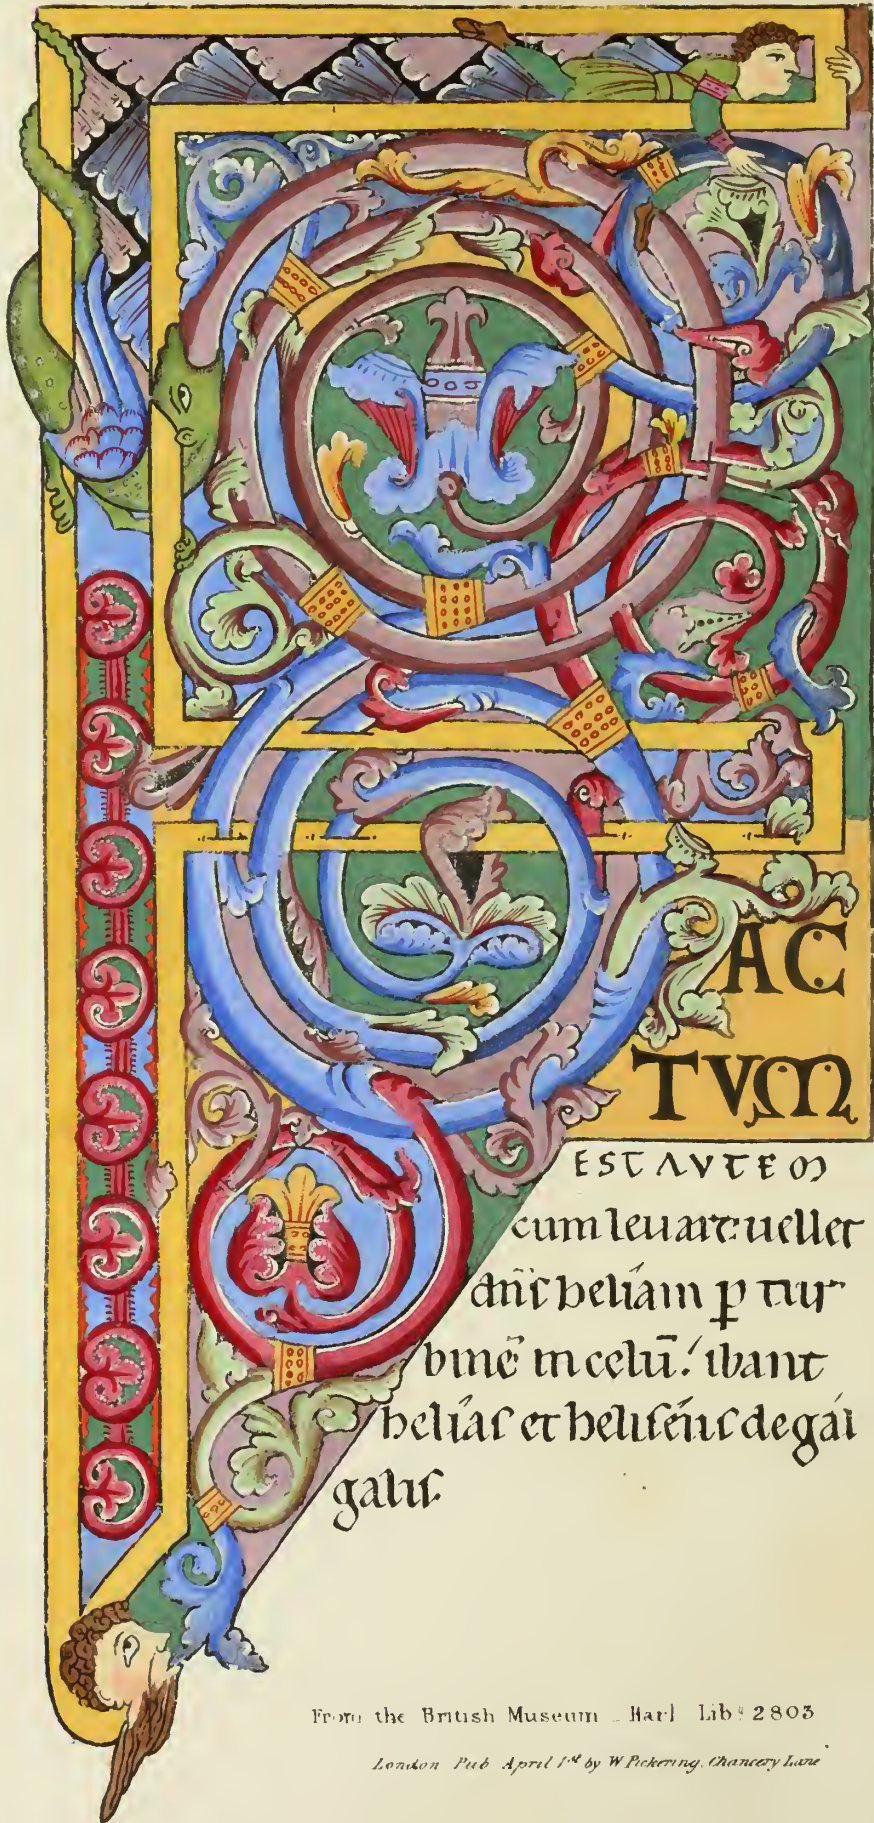 F
AC
TVM
EST AVTEM
cum leuare uellet
dn̄s heliam ꝑ tur
binē in celū! ibant
helias et heliséus de gal
galis
From the British Museum _ Harl Lib. 2803
London Pub April 1st by W Pickering. Chancery Lane